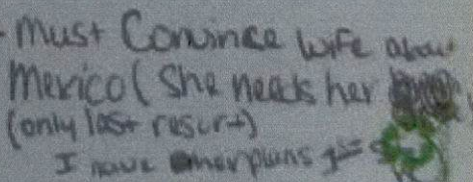 - Must Convince wife about
Mexico (She needs her
(only last resort)
I have other plans